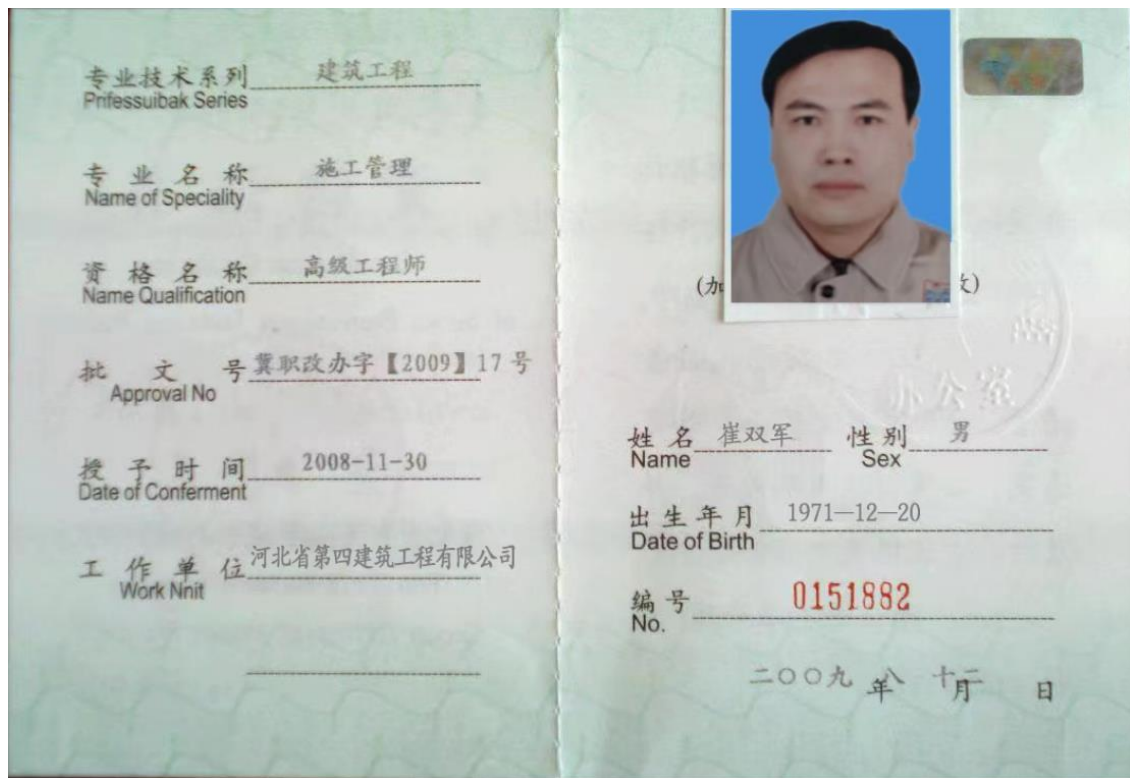 专业技术系列 建筑工程
Prifessuibak Series
专业名称 施工管理
Name of Speciality
资格名称 高级工程师
Name Qualification
批文号 冀职改办字【2009】17号
Approval No
授予时间 2008-11-30
Date of Conferment
工作单位 河北省第四建筑工程有限公司
Work Nnit
(加
)
办公室
姓名 崔双军 性别 男
Name Sex
出生年月 1971—12—20
Date of Birth
编号 0151882
No.
二〇〇九 年 八 月 十二 日